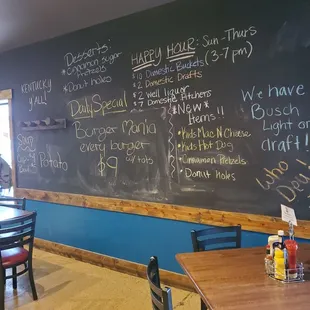 Kentucky
y'all
Soup
Potato
Desserts:
Cinnamon sugar
Pretzels
Donut holes
Daily Special
Burger Mania
every Burger
$9 w/tots
HAPPY HOUR: Sun-Thurs
(3-7pm)
$10 Domestic Buckets
$2 Domestic Drafts
$2 well liquor
$7 Domestic Pitchers
*New*
Items!!
Kids Mac N Cheese
Kids Hot Dog
Cinnamon Pretzels
Donut holes
We have
Busch
Light on
draft!
Who
Dey!